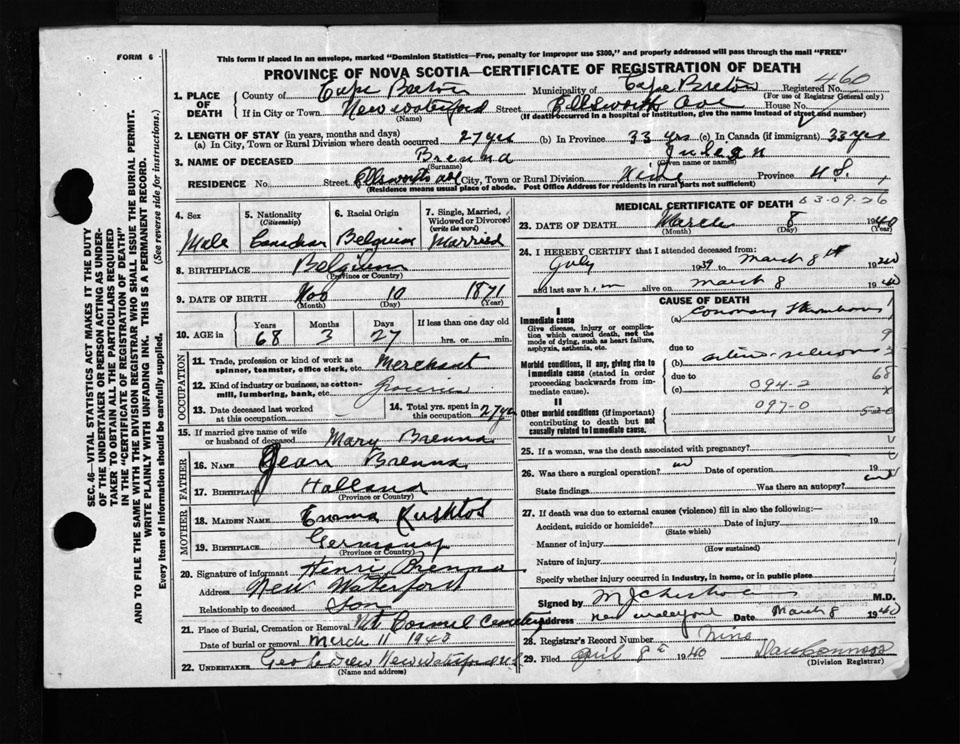 FORM 6
This form if placed in an envelope, marked "Dominion Statistics—Free, penalty for improper use $300," and properly addressed will pass through the mail "FREE"
PROVINCE OF NOVA SCOTIA—CERTIFICATE OF REGISTRATION OF DEATH
SEC. 46—VITAL STATISTICS ACT MAKES IT THE DUTY
OF THE UNDERTAKER OR PERSON ACTING AS UNDER-
TAKER TO OBTAIN ALL THE PARTICULARS REQUIRED
IN THE "CERTIFICATE OF REGISTRATION OF DEATH"
AND TO FILE THE SAME WITH THE DIVISION REGISTRAR WHO SHALL ISSUE THE BURIAL PERMIT.
WRITE PLAINLY WITH UNFADING INK. THIS IS A PERMANENT RECORD.
Every item of information should be carefully supplied. (See reverse side for instructions.)
1. PLACE OF DEATH
County of Cape Breton Municipality of Cape Breton Registered No. 460
(For use of Registrar General only)
If in City or Town New Waterford Street Ellsworth Ave House No.
(Name) (If death occurred in a hospital or institution, give the name instead of street and number)
2. LENGTH OF STAY (in years, months and days)
(a) In City, Town or Rural Division where death occurred 27 yrs (b) In Province 33 yrs (c) In Canada (if immigrant) 33 yrs
3. NAME OF DECEASED Brenna
(Surname) (Given name or names)
RESIDENCE No. Street Ellsworth Ave City, Town or Rural Division Province N.S.
(Residence means usual place of abode. Post Office Address for residents in rural parts not sufficient)
4. Sex
Male
5. Nationality
(Citizenship)
6. Racial Origin
Belgium
7. Single, Married, Widowed or Divorced
(write the word)
Married
8. BIRTHPLACE Belgium
(Province or Country)
9. DATE OF BIRTH Nov 10 1871
(Month) (Day) (Year)
10. AGE in Years Months Days If less than one day old
68 3 27 hrs. or min.
OCCUPATION
11. Trade, profession or kind of work as
spinner, teamster, office clerk, etc. Merchant
12. Kind of industry or business, as cotton-
mill, lumbering, bank, etc. Groceries
13. Date deceased last worked
at this occupation
14. Total yrs. spent in
this occupation 27 yrs
15. If married give name of wife
or husband of deceased Mary Brenna
FATHER
16. NAME Jean Brenna
17. BIRTHPLACE Holland
(Province or Country)
MOTHER
18. MAIDEN NAME Emma
19. BIRTHPLACE Germany
(Province or Country)
20. Signature of informant Henri Brenna
Address New Waterford
Relationship to deceased Son
21. Place of Burial, Cremation or Removal Mt Carmel Cemetery
Date of burial or removal March 11 1940
22. UNDERTAKER New Waterford N.S
(Name and address)
MEDICAL CERTIFICATE OF DEATH 83-09.26
23. DATE OF DEATH March 8 1940
(Month) (Day) (Year)
24. I HEREBY CERTIFY that I attended deceased from:
July 1939 to March 8th 1940
and last saw h im alive on March 8 1940
CAUSE OF DEATH
I
Immediate cause
Give disease, injury or complica-
tion which caused death, not the
mode of dying, such as heart failure,
asphyxia, asthenia, etc.
(a) Coronary Thrombosis
due to
Morbid conditions, if any, giving rise to
immediate cause (stated in order
proceeding backwards from im-
mediate cause).
(b)
due to
(c) 094-2
II
Other morbid conditions (if important)
contributing to death but not
causally related to immediate cause.
097-0
9
68
25. If a woman, was the death associated with pregnancy?
26. Was there a surgical operation? no Date of operation 19
State findings Was there an autopsy? no
27. If death was due to external causes (violence) fill in also the following:—
Accident, suicide or homicide? Date of injury 19
(State which)
Manner of injury
(How sustained)
Nature of injury
Specify whether injury occurred in industry, in home, or in public place
Signed by M.D.
Address New Waterford Date March 8 1940
28. Registrar's Record Number Nine
29. Filed April 8th 1940
(Division Registrar)